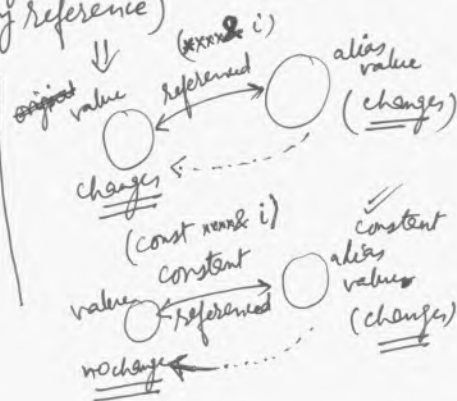 y reference)
(xxxx& i)
value
referenced
alias
value
(changes)
changes
(const xxxx& i)
constent
constent
alias
value
(changes)
value
referenced
no change